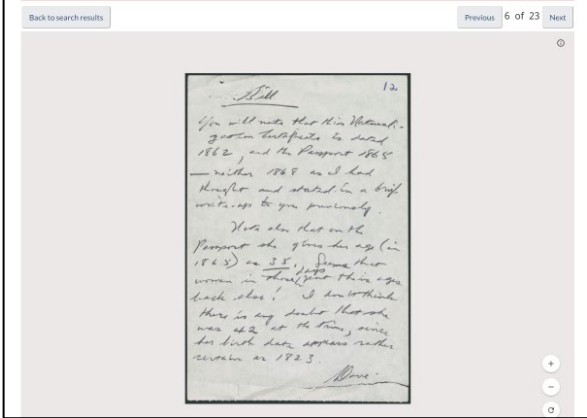 Back to search results
Previous 6 of 23 Next
12
Bill
You will note that this Naturali-
zation Certificate is dated
1862, and the Passport 1865
— neither 1868 as I had
thought and stated in a brief
write-up to you previously.
Note also that on the
Passport she gives her age (in
1865) as 35. Seems that
women in those days put their ages
back also! I don't think
there is any doubt that she
was 42 at the time, since
her birth date appears rather
certain as 1823.
Dave